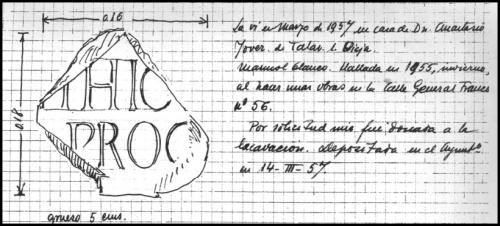 0.16
0.18
IHIC
PROC
grueso 5 cms.
La vi en Marzo de 1957 en casa de Dn. Anastasio
Tover. de Talav. la Vieja.
Marmol blanco. Hallada en 1955, invierno,
al hacer unas obras en la Calle General Franco
nº 56.
Por solicitud mia fué donada a la
Excavacion. depositada en el Ayuntº
en 14-III-57.